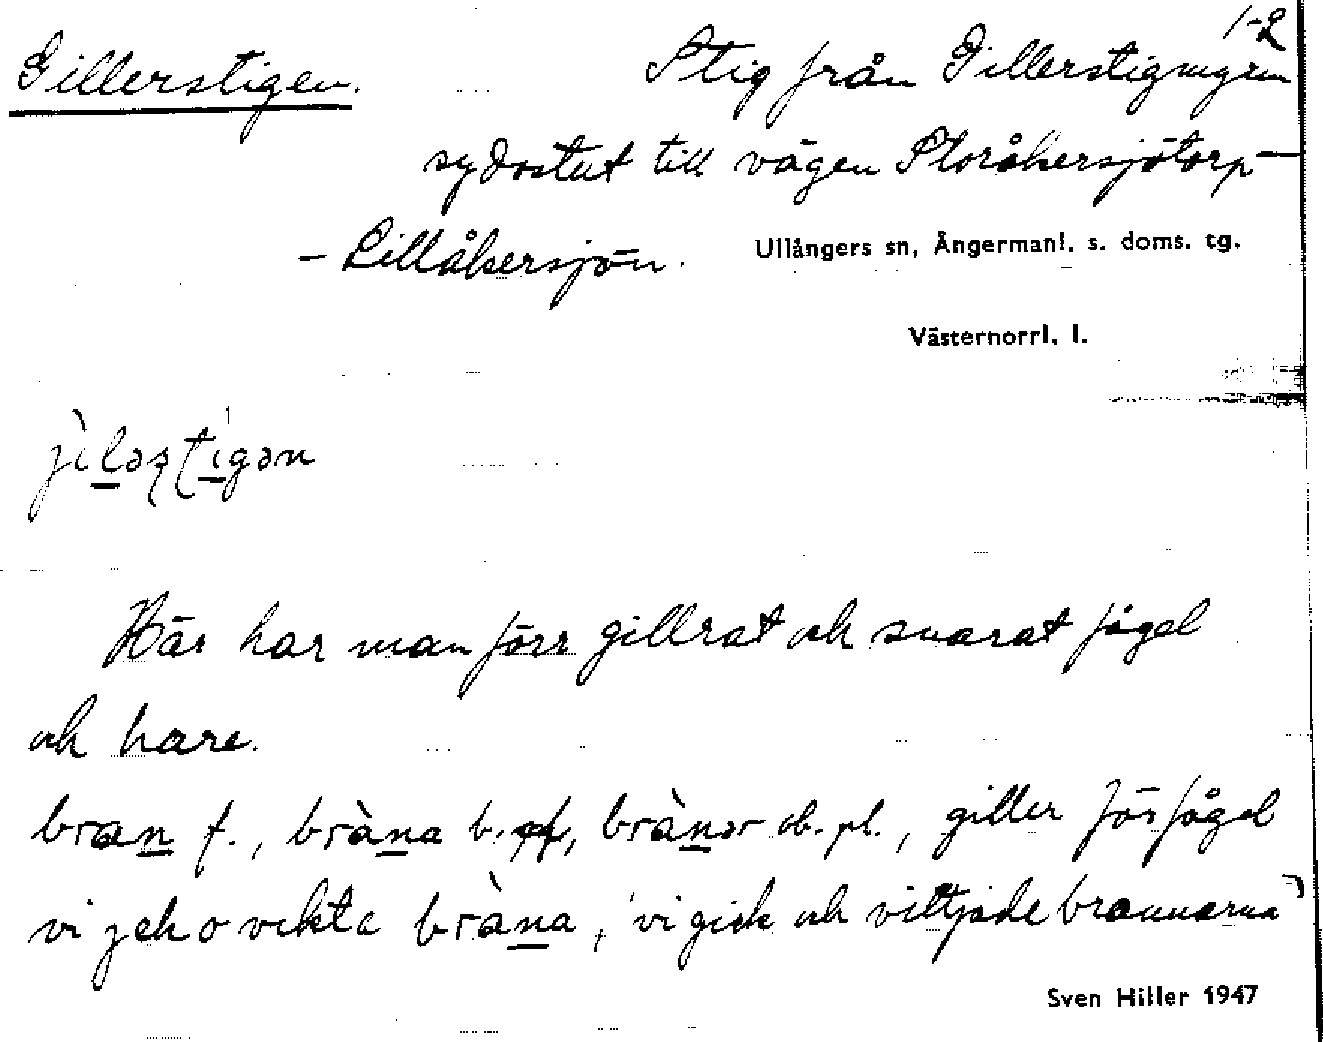 1-2
Gillerstigen. Stig från Gillerstigmyren
sydostut till vägen Storåkersjötorp-
- Lillåkersjön. Ullångers sn, Ångermanl. s. doms. tg.
Västernorrl. l.
jìləʂtigən
Här har man förr gillrat och snarat fågel
och hare.
bran f., bràna b., brànər ob. pl., giller för fågel
vi jek o vekta bràna, 'vi gick och vittjade brannarna'
Sven Hiller 1947